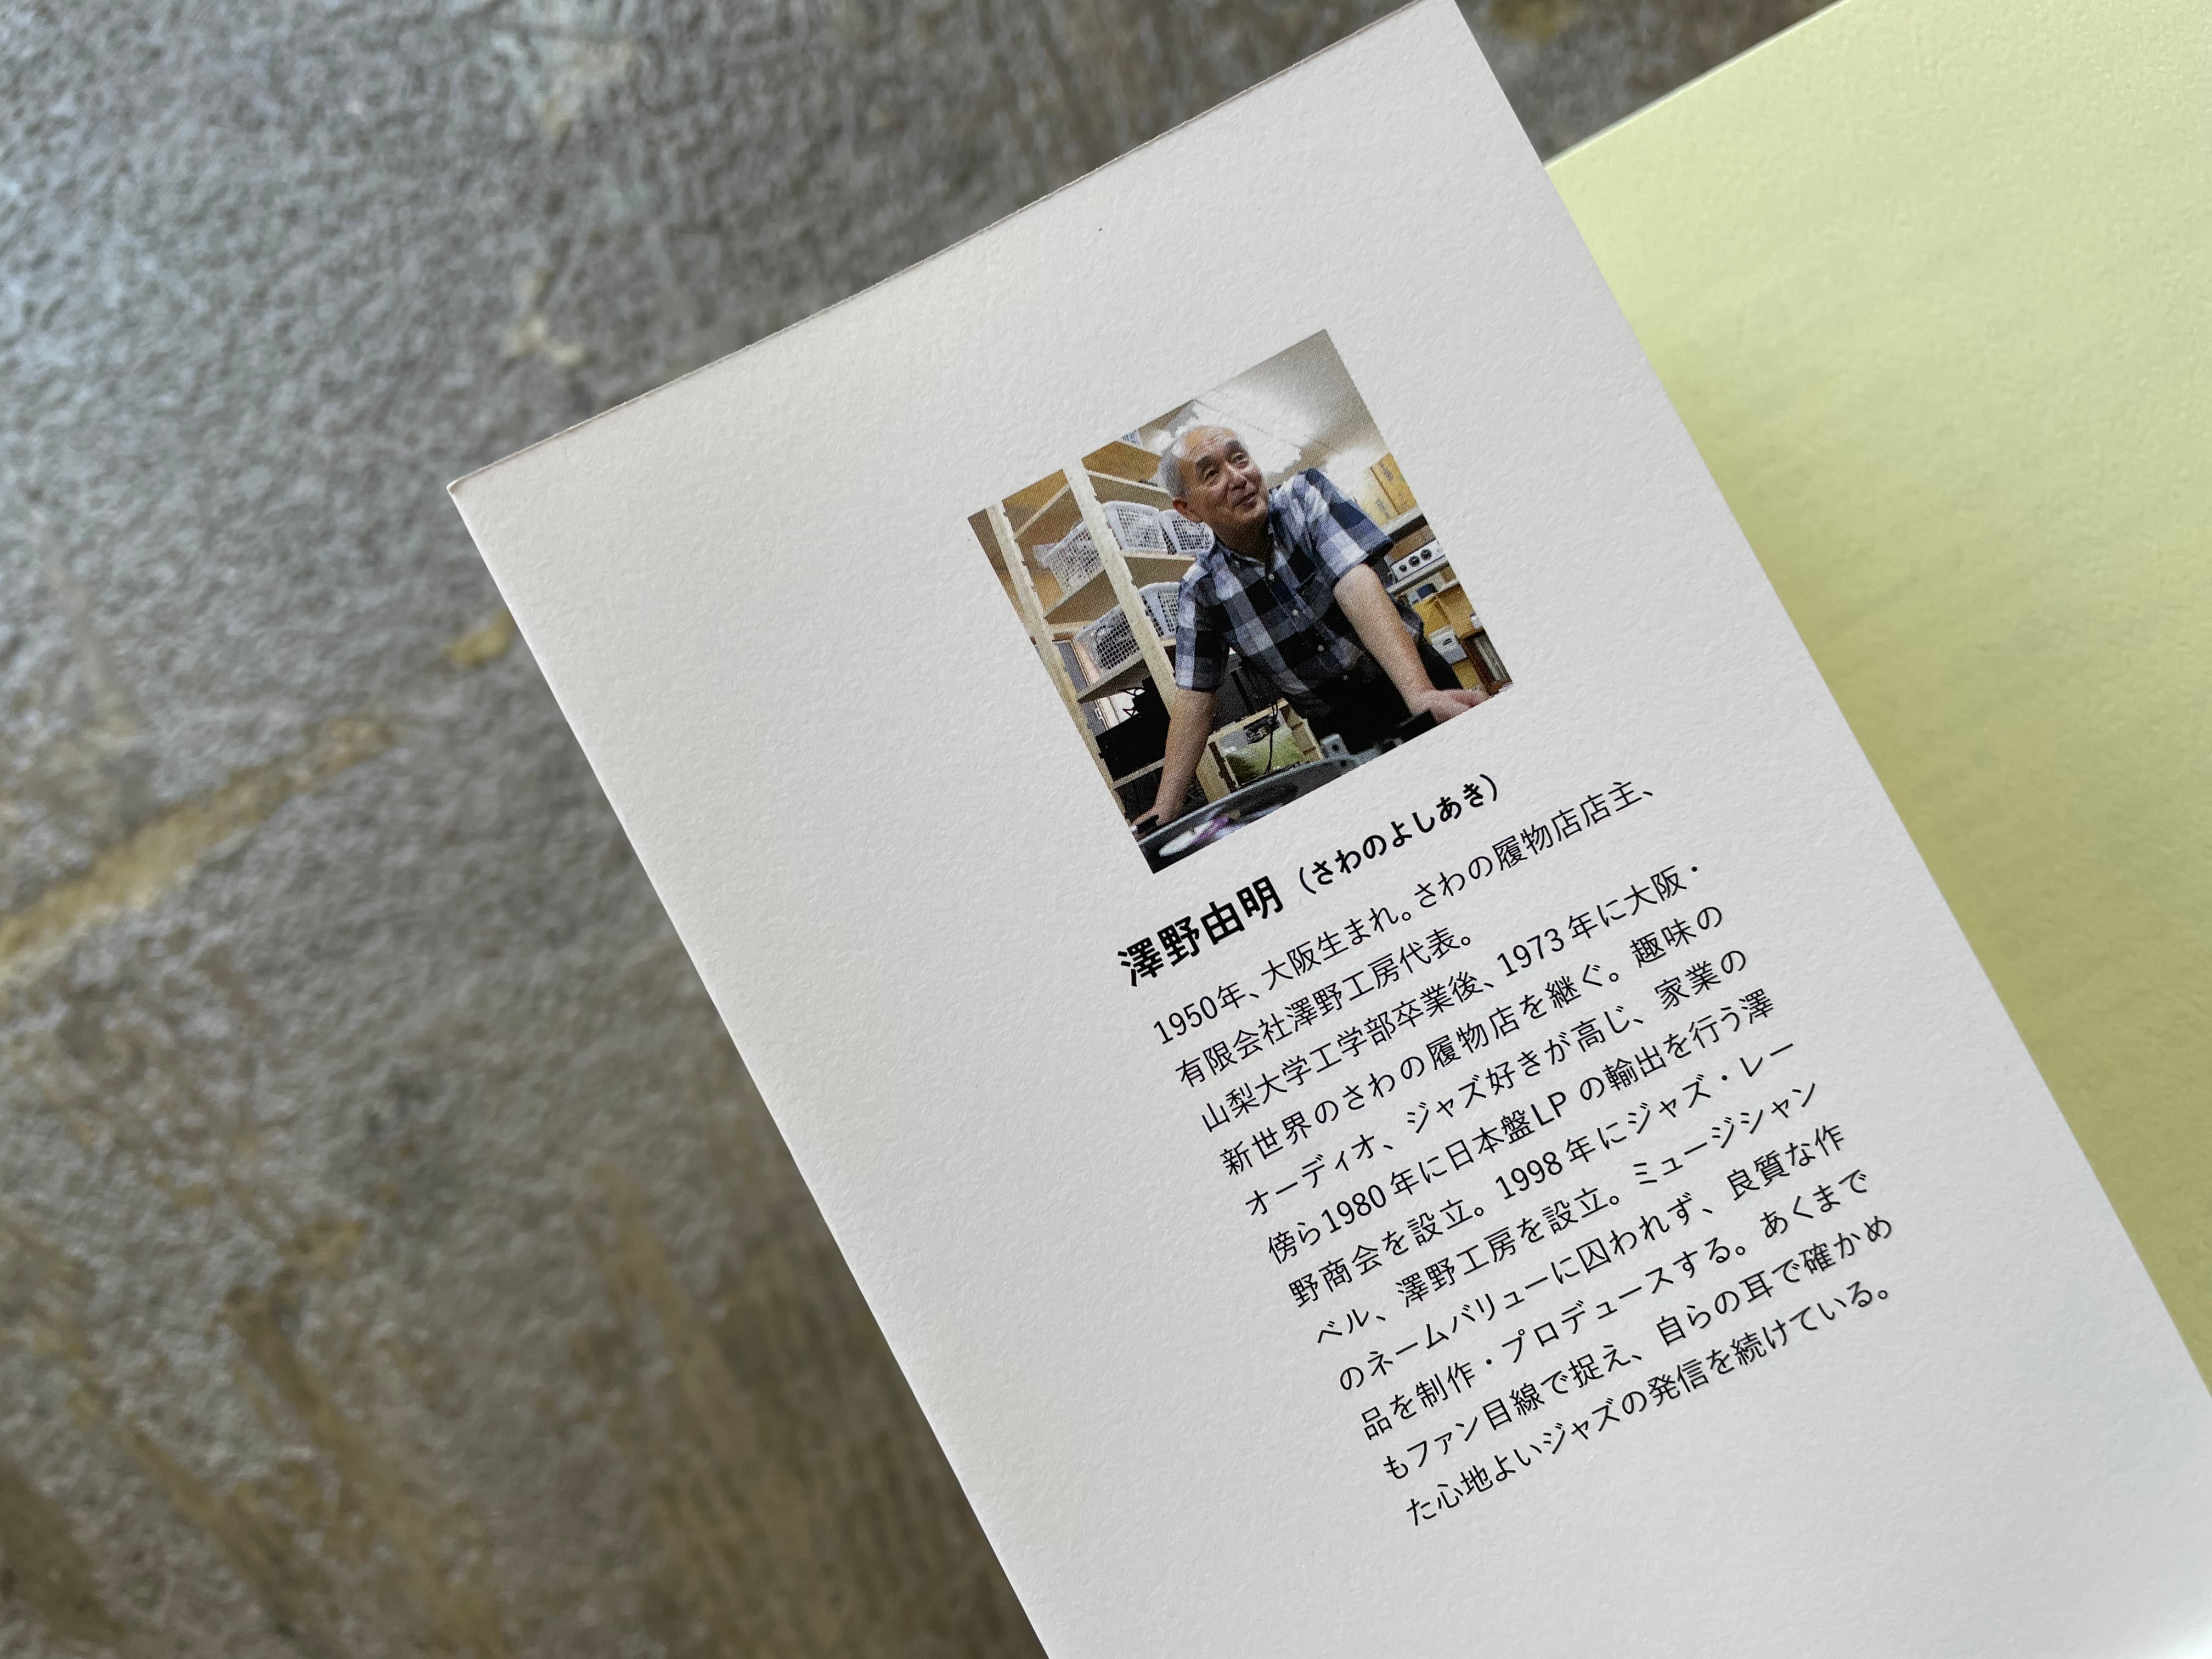 澤野由明（さわのよしあき）
1950年、大阪生まれ。さわの履物店店主、
有限会社澤野工房代表。
山梨大学工学部卒業後、1973年に大阪・
新世界のさわの履物店を継ぐ。趣味の
オーディオ、ジャズ好きが高じ、家業の
傍ら1980年に日本盤LPの輸出を行う澤
野商会を設立。1998年にジャズ・レー
ベル、澤野工房を設立。ミュージシャン
のネームバリューに囚われず、良質な作
品を制作・プロデュースする。あくまで
もファン目線で捉え、自らの耳で確かめ
た心地よいジャズの発信を続けている。